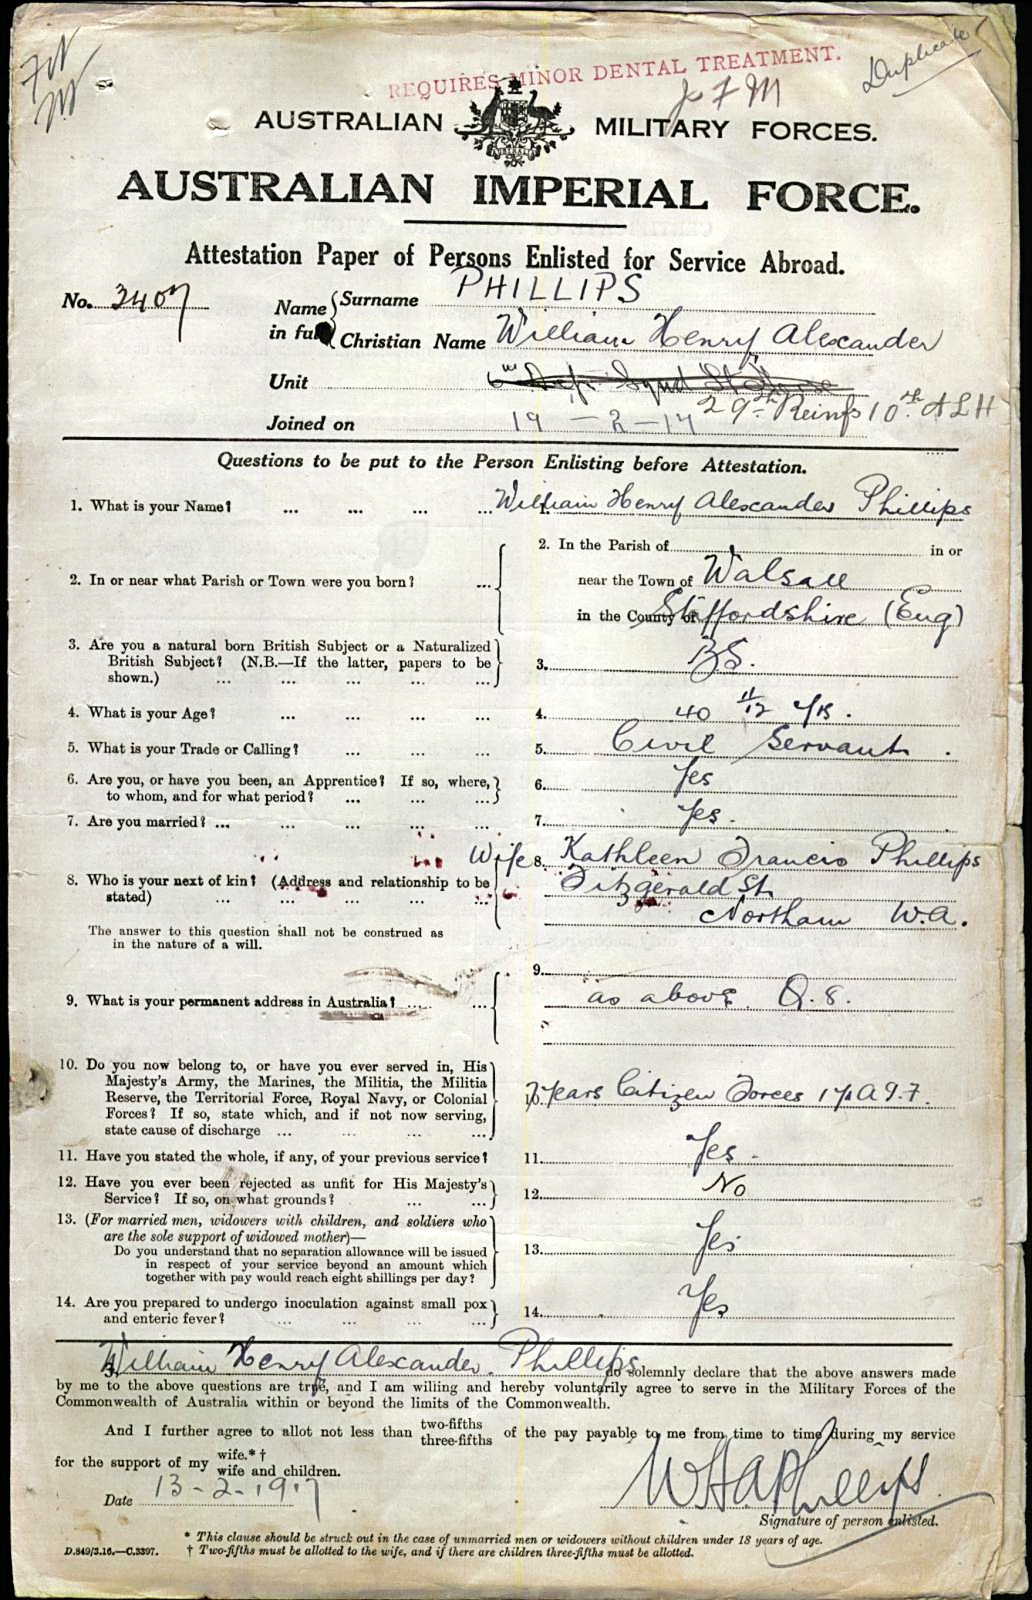 Duplicate
REQUIRES MINOR DENTAL TREATMENT.
AUSTRALIAN MILITARY FORCES.
AUSTRALIAN IMPERIAL FORCE.
Attestation Paper of Persons Enlisted for Service Abroad.
No. 3407
Name in full Surname PHILLIPS
Christian Name William Henry Alexander
Unit
29th Reinfs 10th A L H
Joined on 19-2-17
Questions to be put to the Person Enlisting before Attestation.
1. What is your Name? ... ... ... ... 1. William Henry Alexander Phillips
2. In or near what Parish or Town were you born? ... 2. In the Parish of in or
near the Town of Walsall
in the County of Staffordshire (Eng)
3. Are you a natural born British Subject or a Naturalized
British Subject? (N.B.—If the latter, papers to be
shown.) ... ... ... ... ... 3. B.S.
4. What is your Age? ... ... ... ... 4. 40 11/12 yrs.
5. What is your Trade or Calling? ... ... ... 5. Civil Servant.
6. Are you, or have you been, an Apprentice? If so, where,
to whom, and for what period? ... ... ... 6. Yes
7. Are you married? ... ... ... ... ... 7. Yes.
Wife 8. Kathleen Francis Phillips
8. Who is your next of kin? (Address and relationship to be
stated) ... ... ... ... ... Fitzgerald St.
Northam W.A.
The answer to this question shall not be construed as
in the nature of a will.
9. What is your permanent address in Australia? ... ... 9. as above Q. 8.
10. Do you now belong to, or have you ever served in, His
Majesty's Army, the Marines, the Militia, the Militia
Reserve, the Territorial Force, Royal Navy, or Colonial
Forces? If so, state which, and if not now serving,
state cause of discharge ... ... ... ... 10. years Citizen Forces
11. Have you stated the whole, if any, of your previous service? 11. Yes.
12. Have you ever been rejected as unfit for His Majesty's
Service? If so, on what grounds? ... ... 12. No
13. (For married men, widowers with children, and soldiers who
are the sole support of widowed mother)—
Do you understand that no separation allowance will be issued
in respect of your service beyond an amount which
together with pay would reach eight shillings per day? 13. Yes
14. Are you prepared to undergo inoculation against small pox
and enteric fever? ... ... ... ... 14. Yes
I, William Henry Alexander Phillips do solemnly declare that the above answers made
by me to the above questions are true, and I am willing and hereby voluntarily agree to serve in the Military Forces of the
Commonwealth of Australia within or beyond the limits of the Commonwealth.
And I further agree to allot not less than two-fifths three-fifths of the pay payable to me from time to time during my service
for the support of my wife.*† wife and children.
Date 13-2-1917 W H A Phillips
Signature of person enlisted.
* This clause should be struck out in the case of unmarried men or widowers without children under 18 years of age.
D.849/3.16.—C.3397. † Two-fifths must be allotted to the wife, and if there are children three-fifths must be allotted.